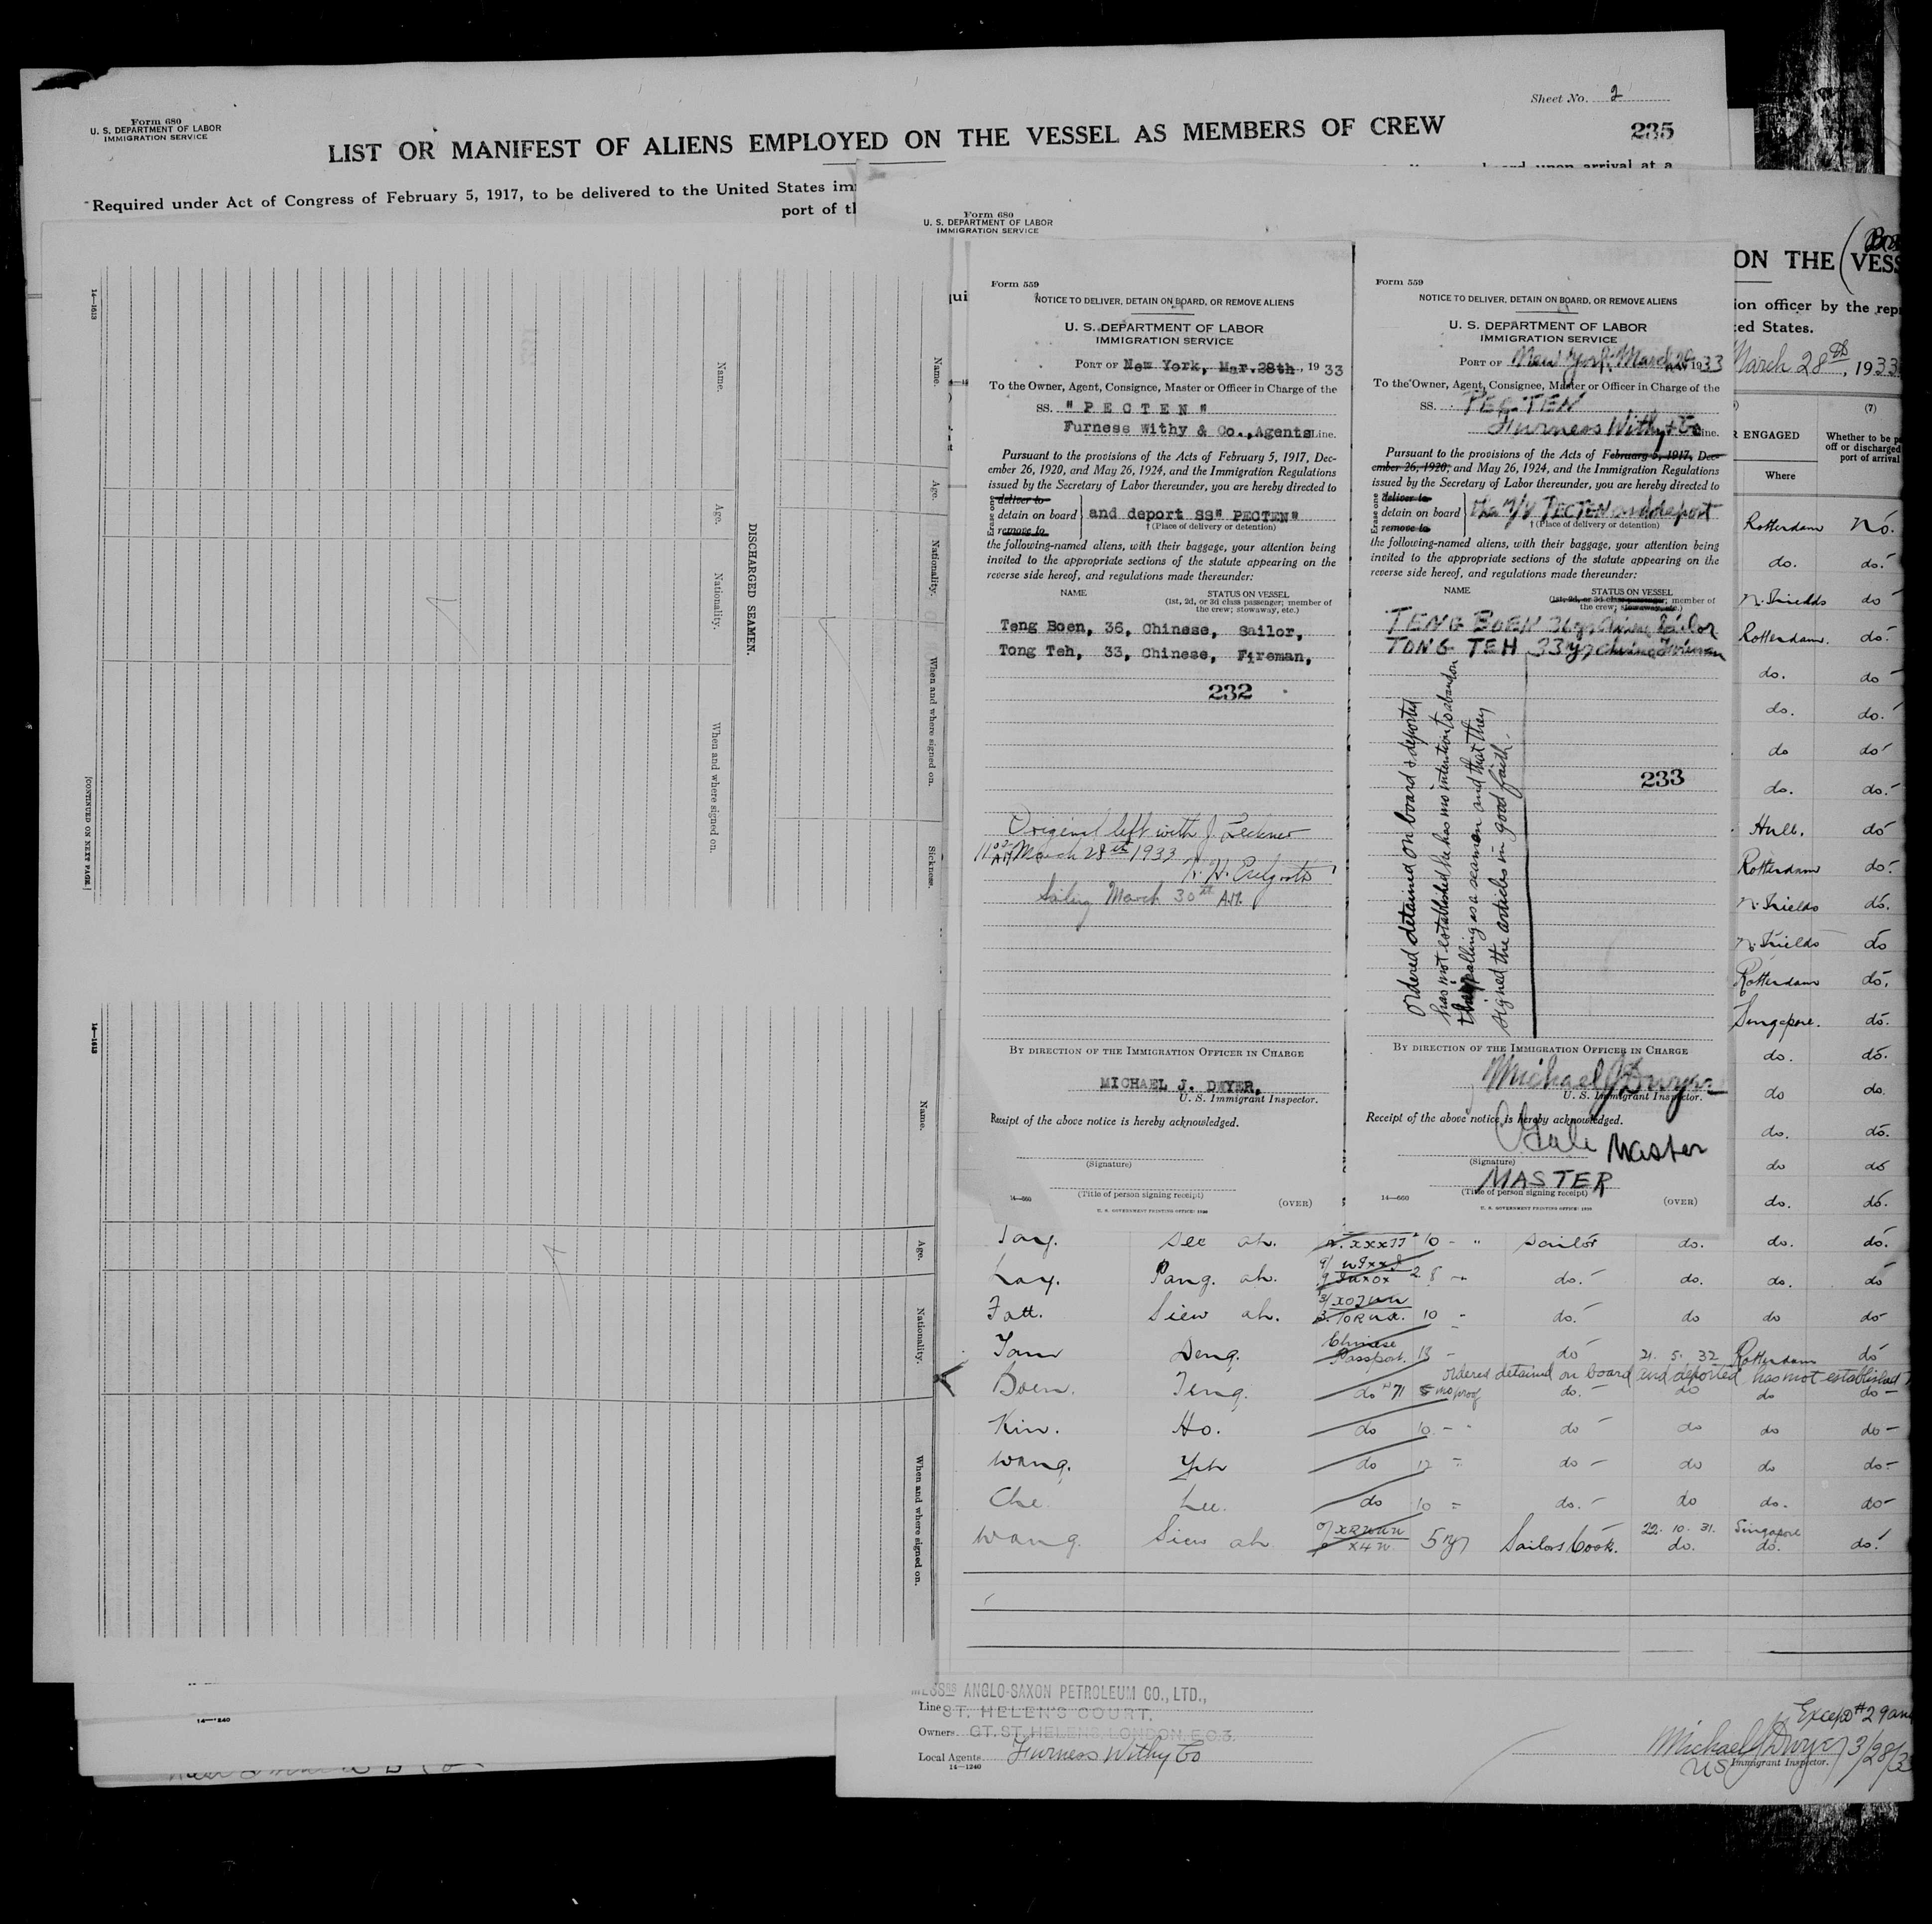 Sheet No. 2
Form 680
U. S. DEPARTMENT OF LABOR
IMMIGRATION SERVICE
LIST OR MANIFEST OF ALIENS EMPLOYED ON THE VESSEL AS MEMBERS OF CREW
235
Required under Act of Congress of February 5, 1917, to be delivered to the United States
port of
board upon arrival at a
Form 680
U. S. DEPARTMENT OF LABOR
IMMIGRATION SERVICE
ON THE VESS
ion officer by the rep
ed States.
March 28th, 1933
14—1613
Name.
Age.
Nationality.
When and where signed on.
DISCHARGED SEAMEN.
[CONTINUED ON NEXT PAGE]
Name.
Age.
Nationality.
When and where signed on.
Sickness.
14—1613
Name.
Age.
Nationality.
When and where signed on.
14—1240
Form 559
NOTICE TO DELIVER, DETAIN ON BOARD, OR REMOVE ALIENS
U. S. DEPARTMENT OF LABOR
IMMIGRATION SERVICE
PORT OF New York, Mar.28th, 1933
To the Owner, Agent, Consignee, Master or Officer in Charge of the
SS. "PECTEN"
Furness Withy & Co.,Agents Line.
Pursuant to the provisions of the Acts of February 5, 1917, Dec-
ember 26, 1920, and May 26, 1924, and the Immigration Regulations
issued by the Secretary of Labor thereunder, you are hereby directed to
Erase one
deliver to
detain on board and deport SS" PECTEN"
remove to
† (Place of delivery or detention)
the following-named aliens, with their baggage, your attention being
invited to the appropriate sections of the statute appearing on the
reverse side hereof, and regulations made thereunder:
NAME
STATUS ON VESSEL
(1st, 2d, or 3d class passenger; member of
the crew; stowaway, etc.)
Teng Boen, 36, Chinese, Sailor,
Tong Teh, 33, Chinese, Fireman,
232
Original left with J.
March 28th 1933
Sailing March 30th A.M.
BY DIRECTION OF THE IMMIGRATION OFFICER IN CHARGE
MICHAEL J. DWYER,
U. S. Immigrant Inspector.
Receipt of the above notice is hereby acknowledged.
(Signature)
(Title of person signing receipt)
14—660
(OVER)
Form 559
NOTICE TO DELIVER, DETAIN ON BOARD, OR REMOVE ALIENS
U. S. DEPARTMENT OF LABOR
IMMIGRATION SERVICE
PORT OF New York, March 28 1933
To the Owner, Agent, Consignee, Master or Officer in Charge of the
SS. PECTEN
Furness Withy & Co Line.
Pursuant to the provisions of the Acts of February 5, 1917, Dec-
ember 26, 1920, and May 26, 1924, and the Immigration Regulations
issued by the Secretary of Labor thereunder, you are hereby directed to
Erase one
deliver to
detain on board the M/V PECTEN and deport
remove to
† (Place of delivery or detention)
the following-named aliens, with their baggage, your attention being
invited to the appropriate sections of the statute appearing on the
reverse side hereof, and regulations made thereunder:
NAME
STATUS ON VESSEL
(1st, 2d, or 3d class passenger; member of
the crew; stowaway, etc.)
TENG BOEN 36 yrs Chinese Sailor
TONG TEH 33 yrs Chinese Fireman
233
Ordered detained on board & deported
has not established he has no intention to abandon
calling as a seamen and that they
signed the articles in good faith.
BY DIRECTION OF THE IMMIGRATION OFFICER IN CHARGE
Michael J Dwyer
U. S. Immigrant Inspector.
Receipt of the above notice is hereby acknowledged.
Master
(Signature)
MASTER
(Title of person signing receipt)
14—660
(OVER)
ENGAGED
Where
(7)
Whether to be
off or discharged
port of arrival
Rotterdam No.
do. do.
N. Shields do
Rotterdam. do.
do. do
do. do.
do do
do. do.
Hull. do
Rotterdam do.
N. Shields do.
N. Shields do
Rotterdam do.
Singapore. do.
do. do.
do do.
do. do.
do do
do. do.
See ah. 10 Sailor do. do. do.
Pang. ah. 28 do. do. do. do
Siew ah. 10 do. do do do
Deng. Chinese Passport. 13 do 21. 5. 32 Rotterdam do
ordered detained on board and deported has not established
Boen. Teng. do 71 5 no proof do. do do do
Kin. Ho. do 10 do do do do
Wang. Yeh do 12 do do do do
Che. Lee. do 10 do. do do. do
22. 10. 31. Singapore
Wang. Siew ah 5 yrs Sailors Cook. do. do. do.
MESSRS ANGLO-SAXON PETROLEUM CO., LTD.,
Line ST. HELEN'S COURT.
Owners GT. ST. HELENS, LONDON, E.C.3.
Local Agents Furness Withy Co
14—1240
Except #29 and
Michael J Dwyer 3/28/33
US Immigrant Inspector.